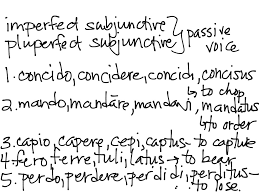 imperfect subjunctive } passive
pluperfect subjunctive } voice
1. concido, concidere, concidi, concisus
↳ to chop
2. mando, mandare, mandavi, mandatus
↳ to order
3. capio, capere, cepi, captus - to capture
4. fero, ferre, tuli, latus → to bear
5. perdo, perdere, perdidi, perditus -
to lose